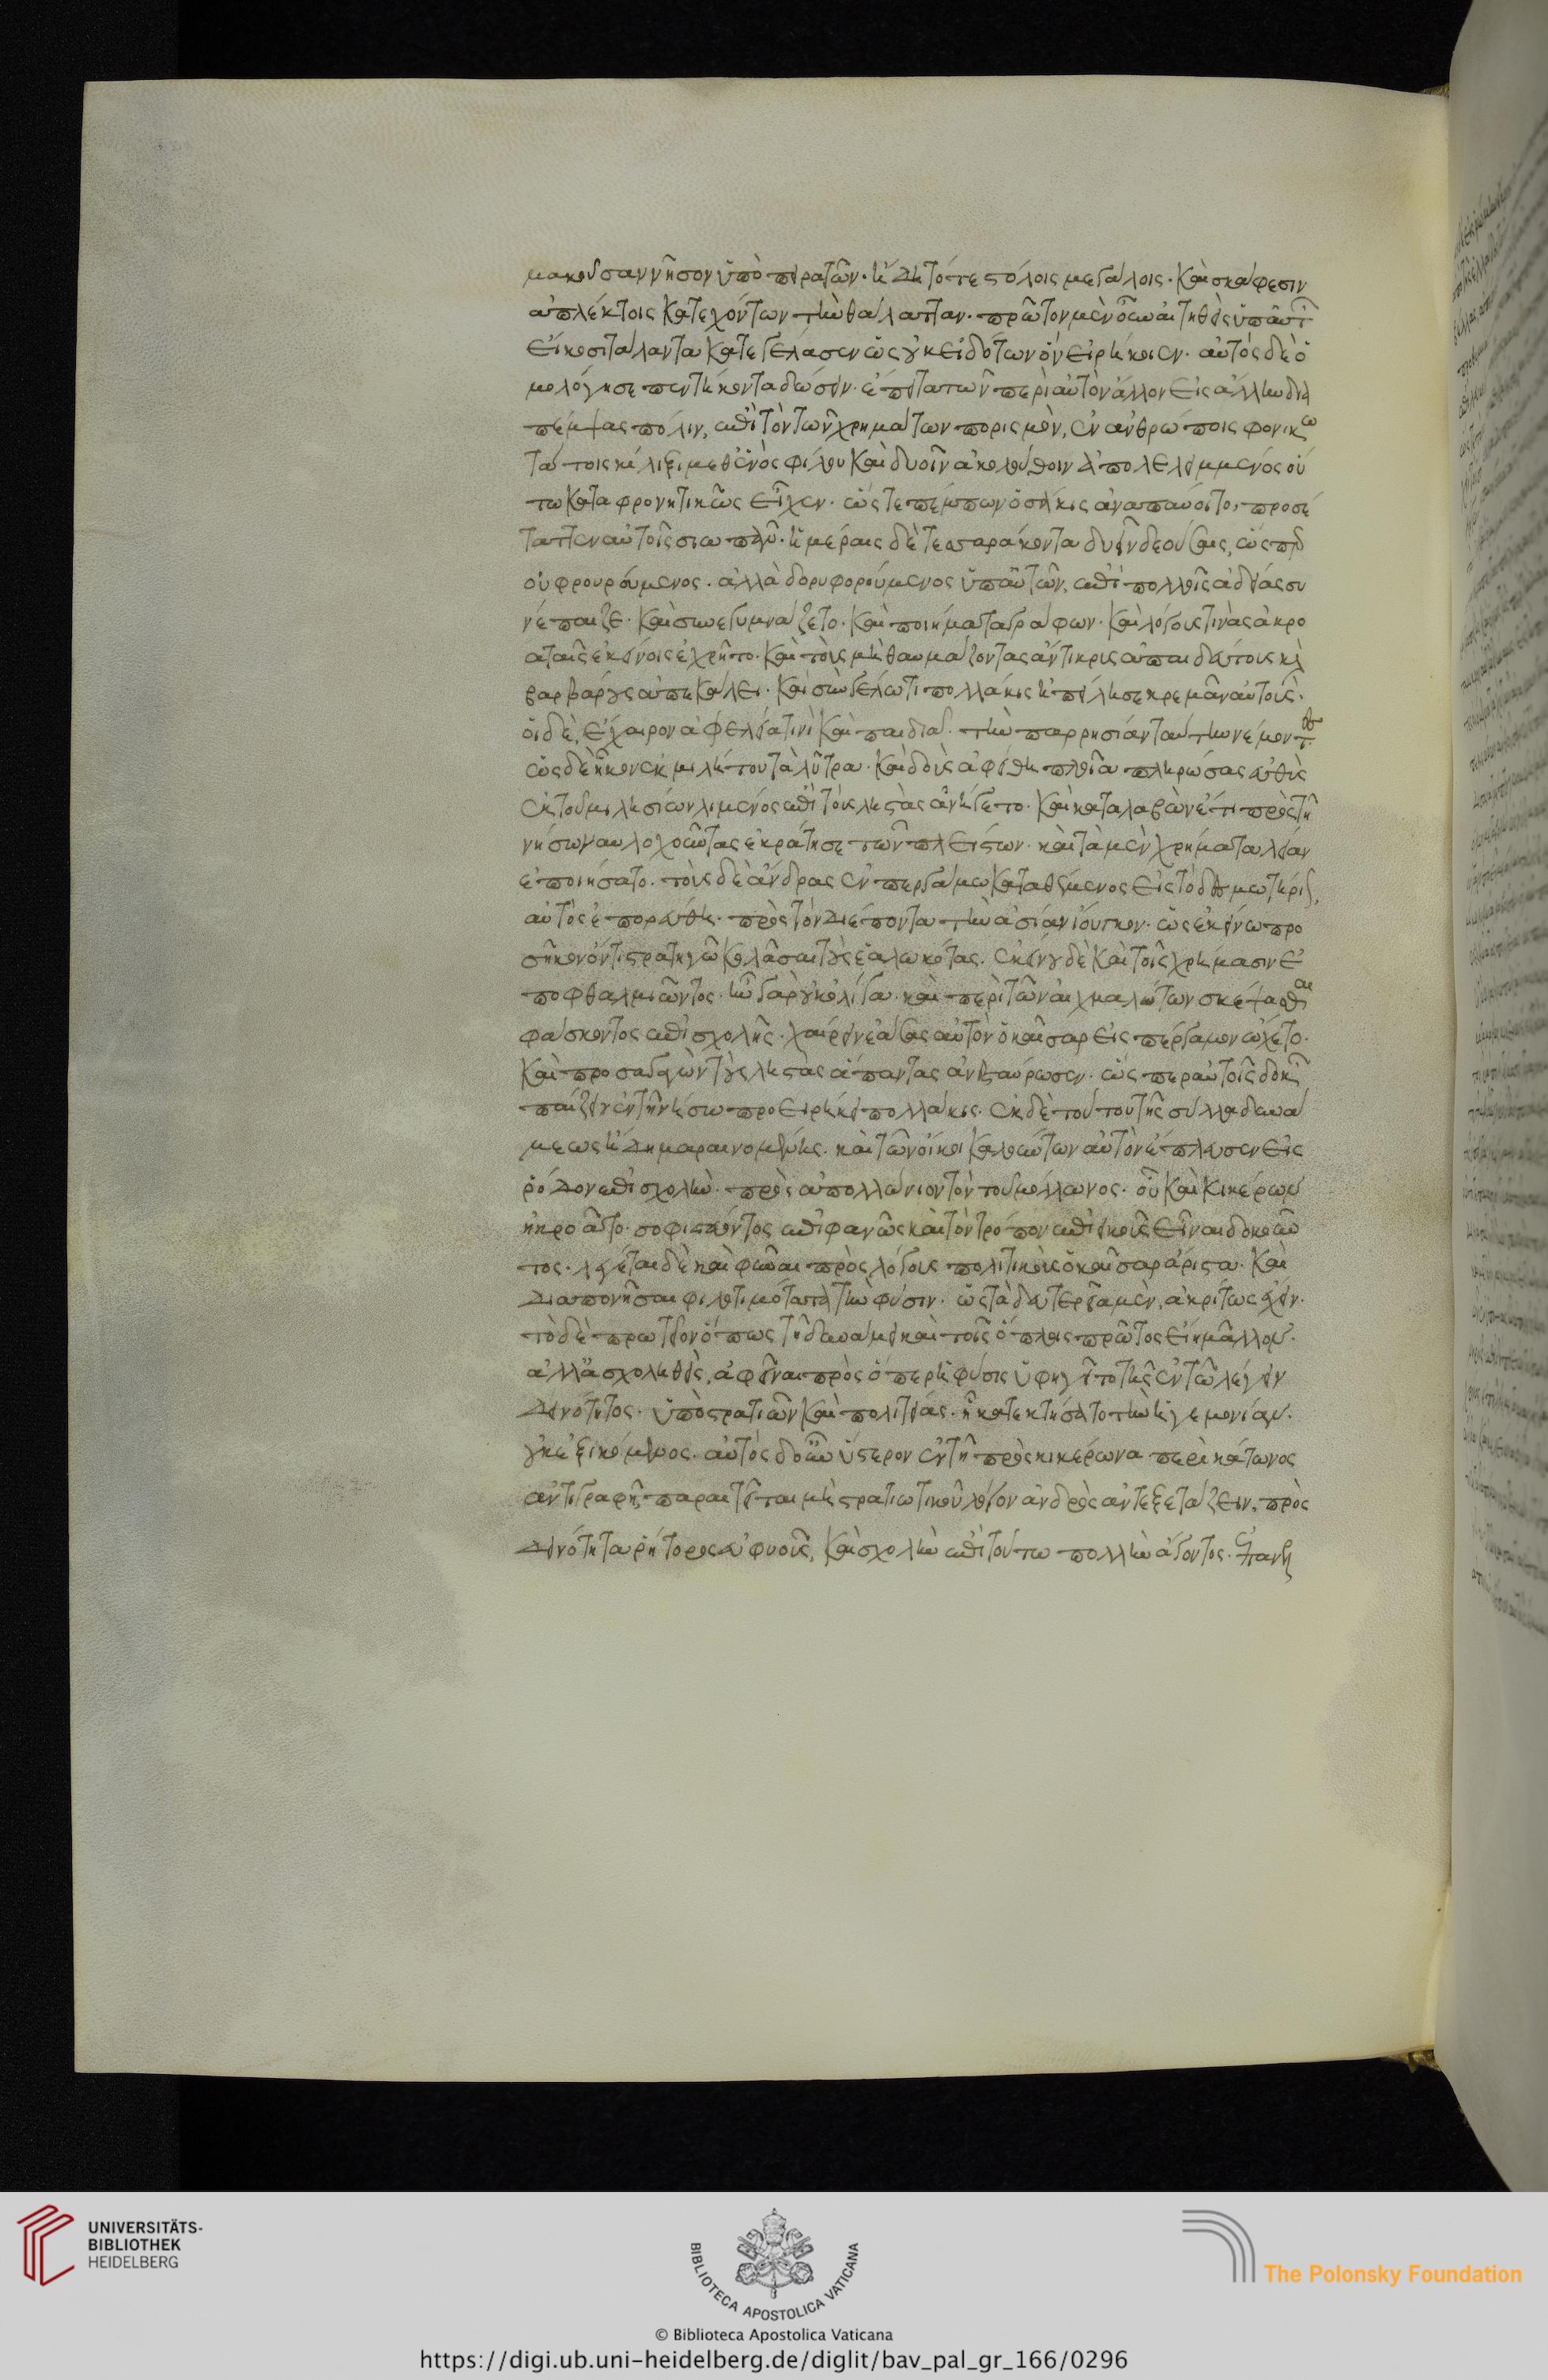 μακοῦσαν νῆσον ὑπὸ πειρατῶν. ἤδη τότε στόλοις μεγάλοις. καὶ σκάφεσιν
ἀπλέκτοις κατεχόντων τὴν θάλατταν. πρῶτον μὲν οὖν αἰτηθεὶς ὑπ αὐτ
εἴκοσι τάλαντα κατεγέλασεν ὡς οὐκ εἰδότων ὃν εἰρήκοιεν. αὐτὸς δὲ ὡ
μολόγησε πεντήκοντα δώσειν. ἔπειτα τῶν περὶ αὐτὸν ἄλλον εἰς ἄλλην δια
πέμψας πόλιν, ἐπὶ τὸν τῶν χρημάτων πορισμὸν, ἐν ἀνθρώποις φονικω
τάτοις κίλιξι μεθ ἑνὸς φίλου καὶ δυοῖν ἀκολούθοιν ἀπολελειμμένος οὕ
τω καταφρονητικῶς εἶχεν. ὥς τε πέμπων ὁσάκις ἀναπαύοιτο, προσέ
ταττεν αὐτοῖς σιωπᾶν. ἡμέραις δὲ τεσσαράκοντα δυεῖν δεούσαις, ὥσπερ
οὐ φρουρούμενος. ἀλλὰ δορυφορούμενος ὑπ αὐτῶν, ἐπὶ πολλῆς ἀδείας συ
νέπαιζε. καὶ συνεγυμνάζετο. καὶ ποιήματα γράφων. καὶ λόγους τινὰς ἀκρο
αταῖς ἐκείνοις ἐχρῆτο. καὶ τοὺς μὴ θαυμάζοντας ἄντικρις ἀπαιδεύτους καὶ
βαρβάρους ἀπεκάλει. καὶ σὺν γέλωτι πολλάκις ἠπείλησε κρεμᾶν αὐτούς.
οἱ δὲ, ἔχαιρον ἀφελείᾳ τινὶ καὶ παιδιᾷ. τὴν παρρησίαν ταύτην νέμοντες
ὡς δὲ ἧκον ἐκ μιλήτου τὰ λύτρα. καὶ δοὺς ἀφείθη πλοῖα πληρώσας εὐθὺς
ἐκ τοῦ μιλησίων λιμένος ἐπὶ τοὺς ληστὰς ἀνήγετο. καὶ καταλαβὼν ἔτι πρὸς τῇ
νήσῳ ναυλοχοῦντας ἐκράτησε τῶν πλείστων. καὶ τὰ μὲν χρήματα λείαν
ἐποιήσατο. τοὺς δὲ ἄνδρας ἐν περγάμῳ καταθέμενος εἰς τὸ δεσμωτήριον,
αὐτὸς ἐπορεύθη. πρὸς τὸν διέποντα τὴν ἀσίαν ἰούγκον. ὡς ἐκείνῳ προ
σῆκον ὄντι στρατηγῷ κολᾶσαι τοὺς ἑαλωκότας. ἐκείνου δὲ καὶ τοῖς χρήμασιν ἐ
ποφθαλμιῶντος. ἦν γὰρ οὐκ ὀλίγα. καὶ περὶ τῶν αἰχμαλώτων σκέψασθαι
φάσκοντος ἐπὶ σχολῆς. χαίρειν ἐάσας αὐτὸν ὁ καῖσαρ εἰς πέργαμον ᾤχετο.
καὶ προσαγαγὼν τοὺς ληστὰς ἅπαντας ἀνεσταύρωσεν. ὥς περ αὐτοῖς δοκῶν
παίζειν ἐν τῇ νήσῳ προειρήκει πολλάκις. ἐκ δὲ τούτου τῆς σύλλα δυνά
μεως ἤδη μαραινομένης. καὶ τῶν οἴκοι καλούντων αὐτὸν ἔπλευσεν εἰς
ῥόδον ἐπὶ σχολὴν. πρὸς ἀπολλώνιον τὸν τοῦ μόλωνος. οὗ καὶ κικέρων
ἠκροᾶτο. σοφιστεύοντος ἐπιφανῶς καὶ τὸν τρόπον ἐπιεικοῦς εἶναι δοκοῦν
τος. λέγεται δὲ καὶ φῦναι πρὸς λόγους πολιτικοὺς ὁ καῖσαρ ἄριστα. καὶ
διαπονῆσαι φιλοτιμότατα τὴν φύσιν. ὡς τὰ δευτερεῖα μὲν, ἀκρίτως ἔχειν.
τὸ δὲ πρωτεῖον ὅπως τῇ δυνάμει καὶ τοῖς ὅπλοις πρῶτος εἴη μᾶλλον.
ἀλλ ἀσχοληθεὶς, ἀφεῖναι πρὸς ὅπερ ἡ φύσις ὑφηγεῖτο τῆς ἐν τῷ λέγειν
δεινότητος. ὑπὸ στρατιῶν καὶ πολιτείας. ᾗ κατεκτήσατο τὴν ἡγεμονίαν.
οὐκ ἐξικόμενος. αὐτὸς δ οὖν ὕστερον ἐν τῇ πρὸς κικέρωνα περὶ κάτωνος
ἀντιγραφῇ, παραιτεῖται μὴ στρατιωτικοῦ λόγον ἀνδρὸς ἀντεξετάζειν, πρὸς
δεινότητα ῥήτορος εὐφυοῦς, καὶ σχολὴν ἐπὶ τούτῳ πολλὴν ἄγοντος. ἐπανελ

UNIVERSITÄTS-
BIBLIOTHEK
HEIDELBERG
BIBLIOTECA APOSTOLICA VATICANA
The Polonsky Foundation
© Biblioteca Apostolica Vaticana
https://digi.ub.uni-heidelberg.de/diglit/bav_pal_gr_166/0296